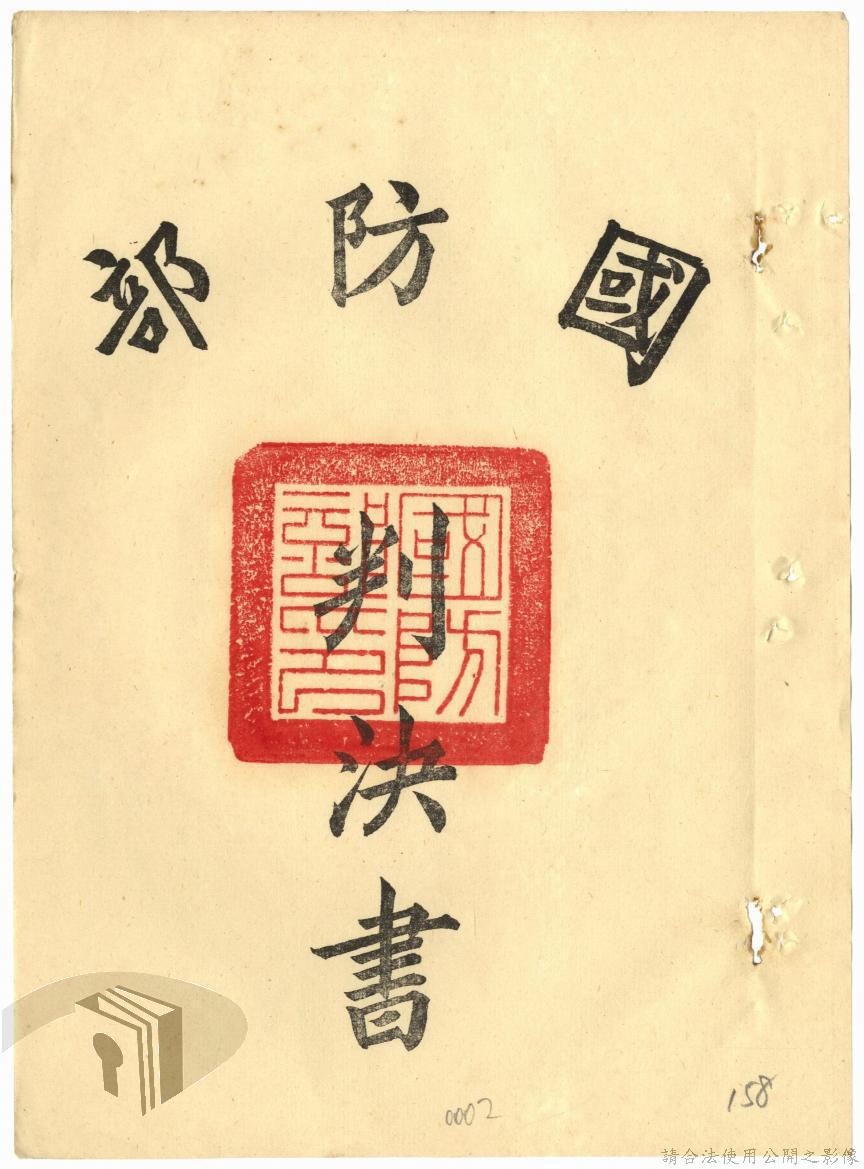 國防部
判決書
國防部印
0002
158
請合法使用公開之影像